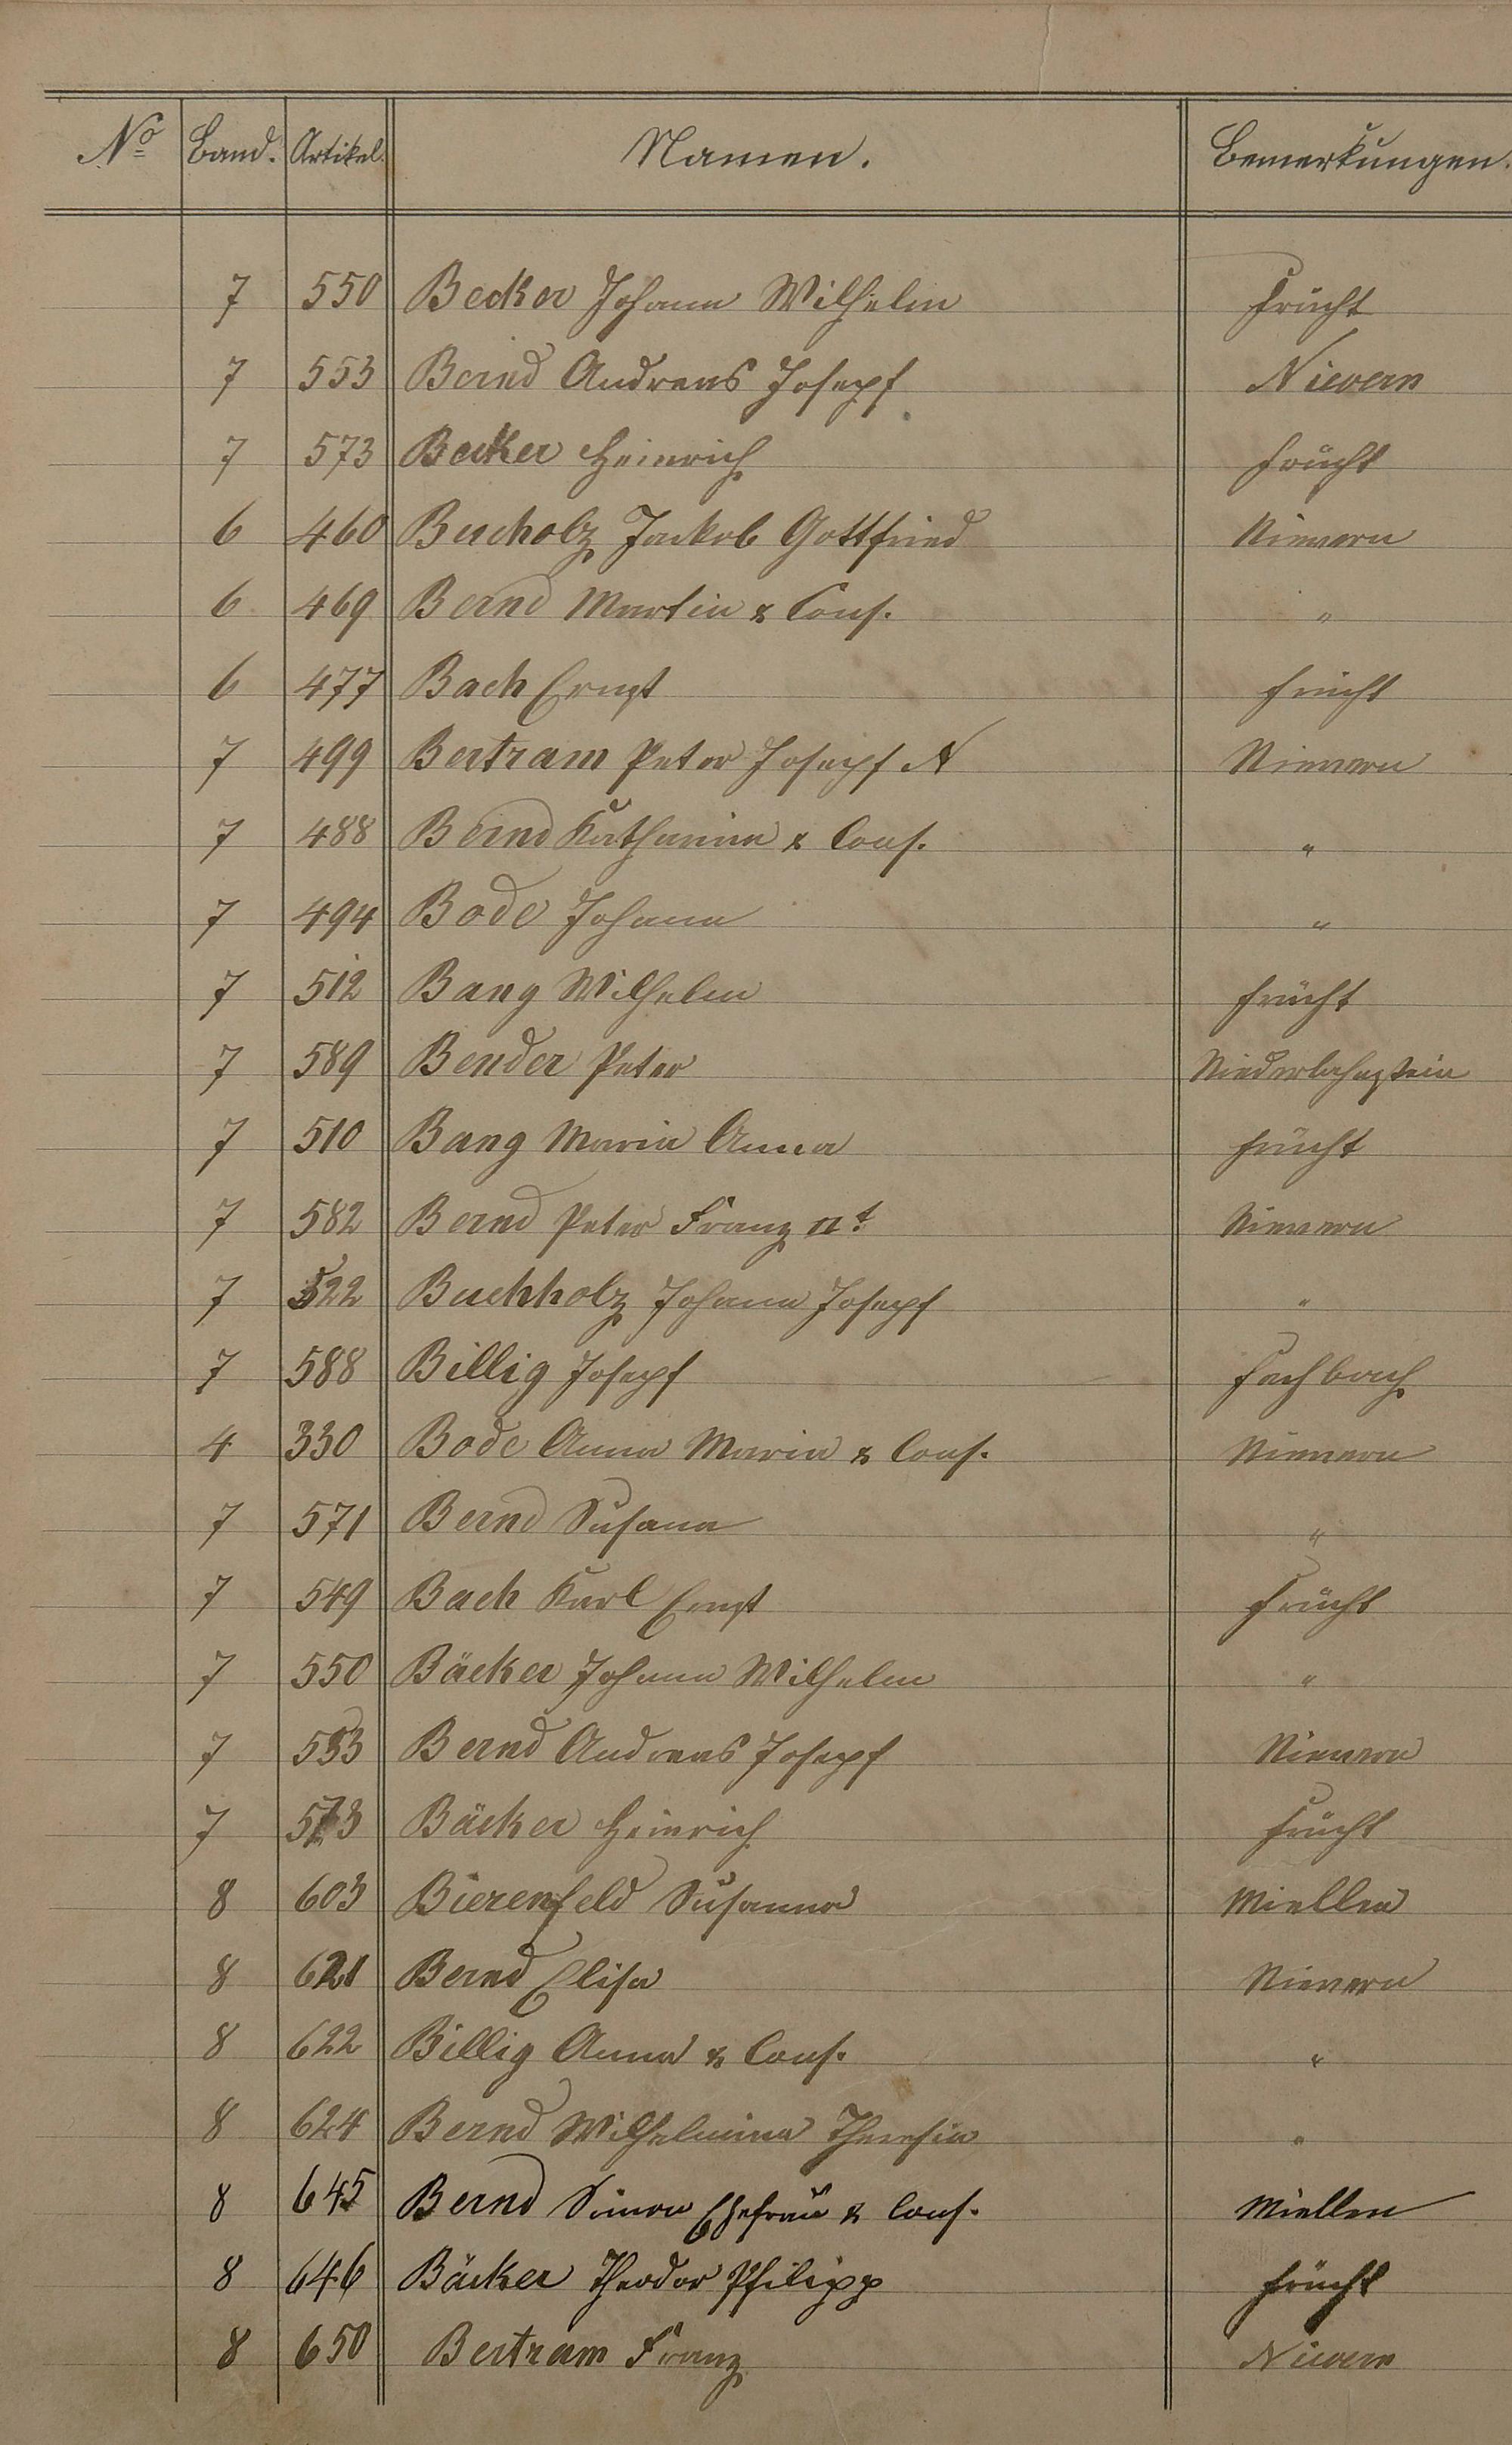 No Band. Artikel. Namen. Bemerkungen.
7 550 Becker Johann Wilhelm Frücht
7 553 Bernd Andreas Josepf Nievern
7 573 Becker Heinrich Frücht
6 460 Bucholz Jackob Gottfried Nievern
6 469 Bernd Martin & Cons. "
6 477 Bach Ernst Frücht
7 499 Bertram Peter Josepf N Nievern
7 488 Bernd Katharina & Cons. "
7 494 Bode Johann "
7 512 Bang Wilhelm Frücht
7 589 Bender Peter Niederlahnstein
7 510 Bang Maria Anna Frücht
7 582 Bernd Peter Franz IIt. Nievern
7 522 Buchholz Johann Josepf "
7 588 Billig Josepf Fachbach
4 330 Bode Anna Maria & Cons. Nievern
7 571 Bernd Susana "
7 549 Bach Karl Ernst Frücht
7 550 Bäcker Johann Wilhelm "
7 553 Bernd Andreas Josepf Nievern
7 573 Bäcker Heinrich Frücht
8 603 Bierenfeld Susanna Miellen
8 621 Bernd Elisa Nievern
8 622 Billig Anna & Cons. "
8 624 Bernd Wilhelmina Theresia "
8 645 Bernd Simon Ehefrau & Cons. Miellen
8 646 Bäcker Theodor Philipp Frücht
8 650 Bertram Franz Nievern